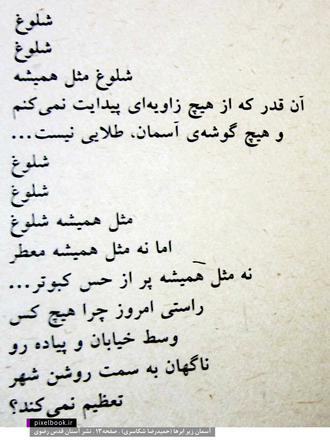 شلوغ
شلوغ
شلوغ مثل همیشه
آن قدر که از هیچ زاویه‌ای پیدایت نمی‌کنم
و هیچ گوشه‌ی آسمان، طلایی نیست...
شلوغ
شلوغ
مثل همیشه شلوغ
اما نه مثل همیشه معطر
نه مثل همیشه پر از حس کبوتر...
راستی امروز چرا هیچ کس
وسط خیابان و پیاده رو
ناگهان به سمت روشن شهر
تعظیم نمی‌کند؟
pixelbook.ir
آسمان زیر ابرها (حمیدرضا شکاسری) . صفحه ۱۳ . نشر آستان قدس رضوی